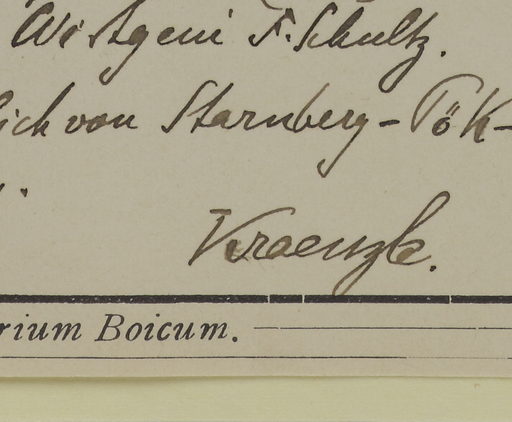 Wirtgeni F. Schultz.
lich von Starnberg - Pök-
Kraenzle.
rium Boicum.